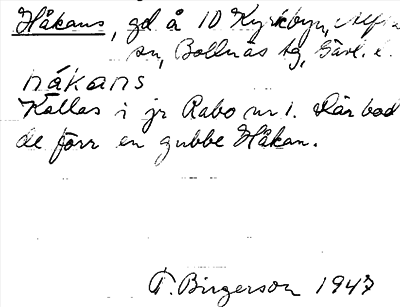 Håkans, gd å 10 Kyrkbyn, Alfta
sn, Bollnäs tg, Gävl. l.
hákans
Kallas i jr Rabo nr 1. Där bod
de förr en gubbe Håkan.
T. Birgerson 1947